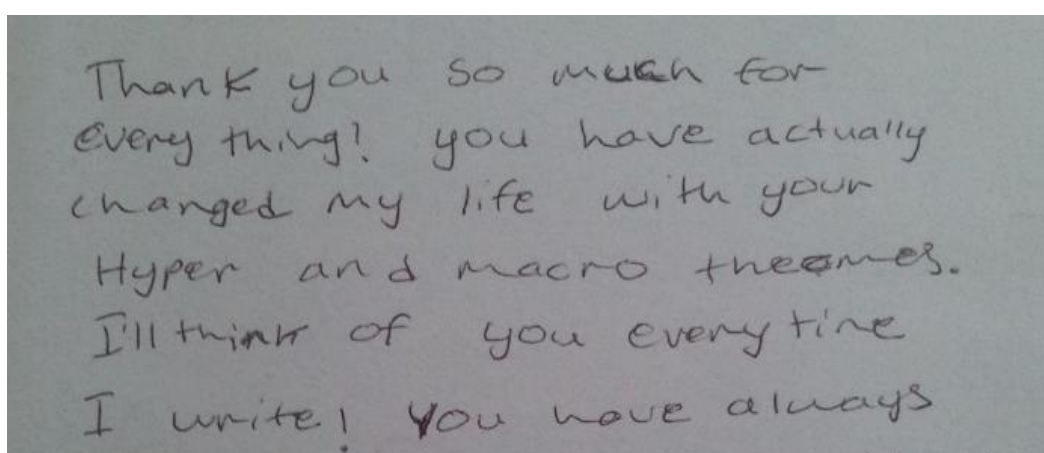 Thank you so much for
every thing! you have actually
changed my life with your
Hyper and macro themes.
I'll think of you every time
I write! You have always